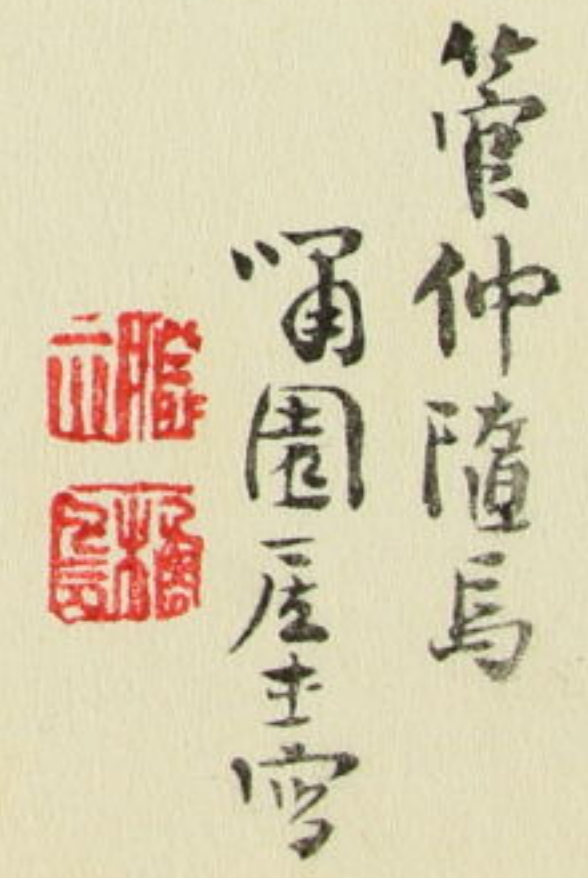 管仲隨馬
嘯園居士寫